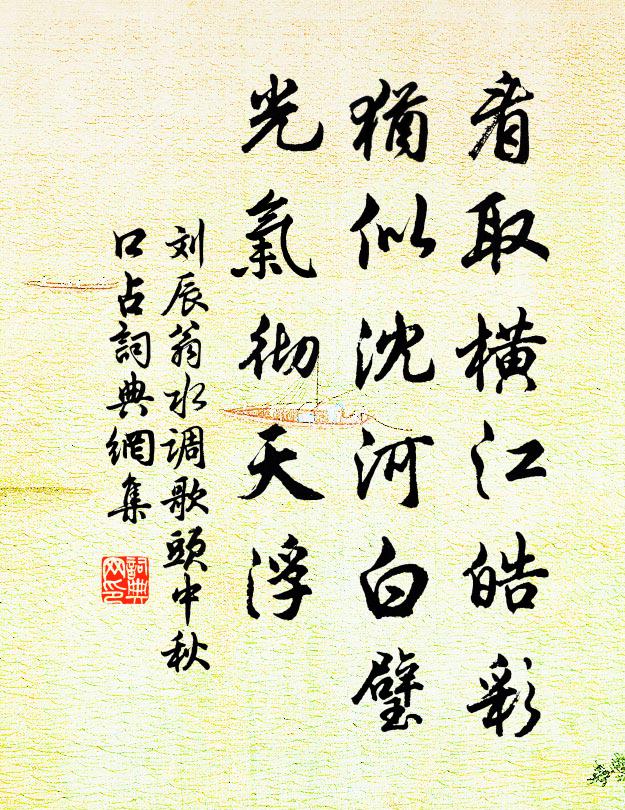 看取横江皓彩
犹似沈河白璧
光氣彻天浮
刘辰翁水调歌頭中秋
口占詞典網集
詞典网印